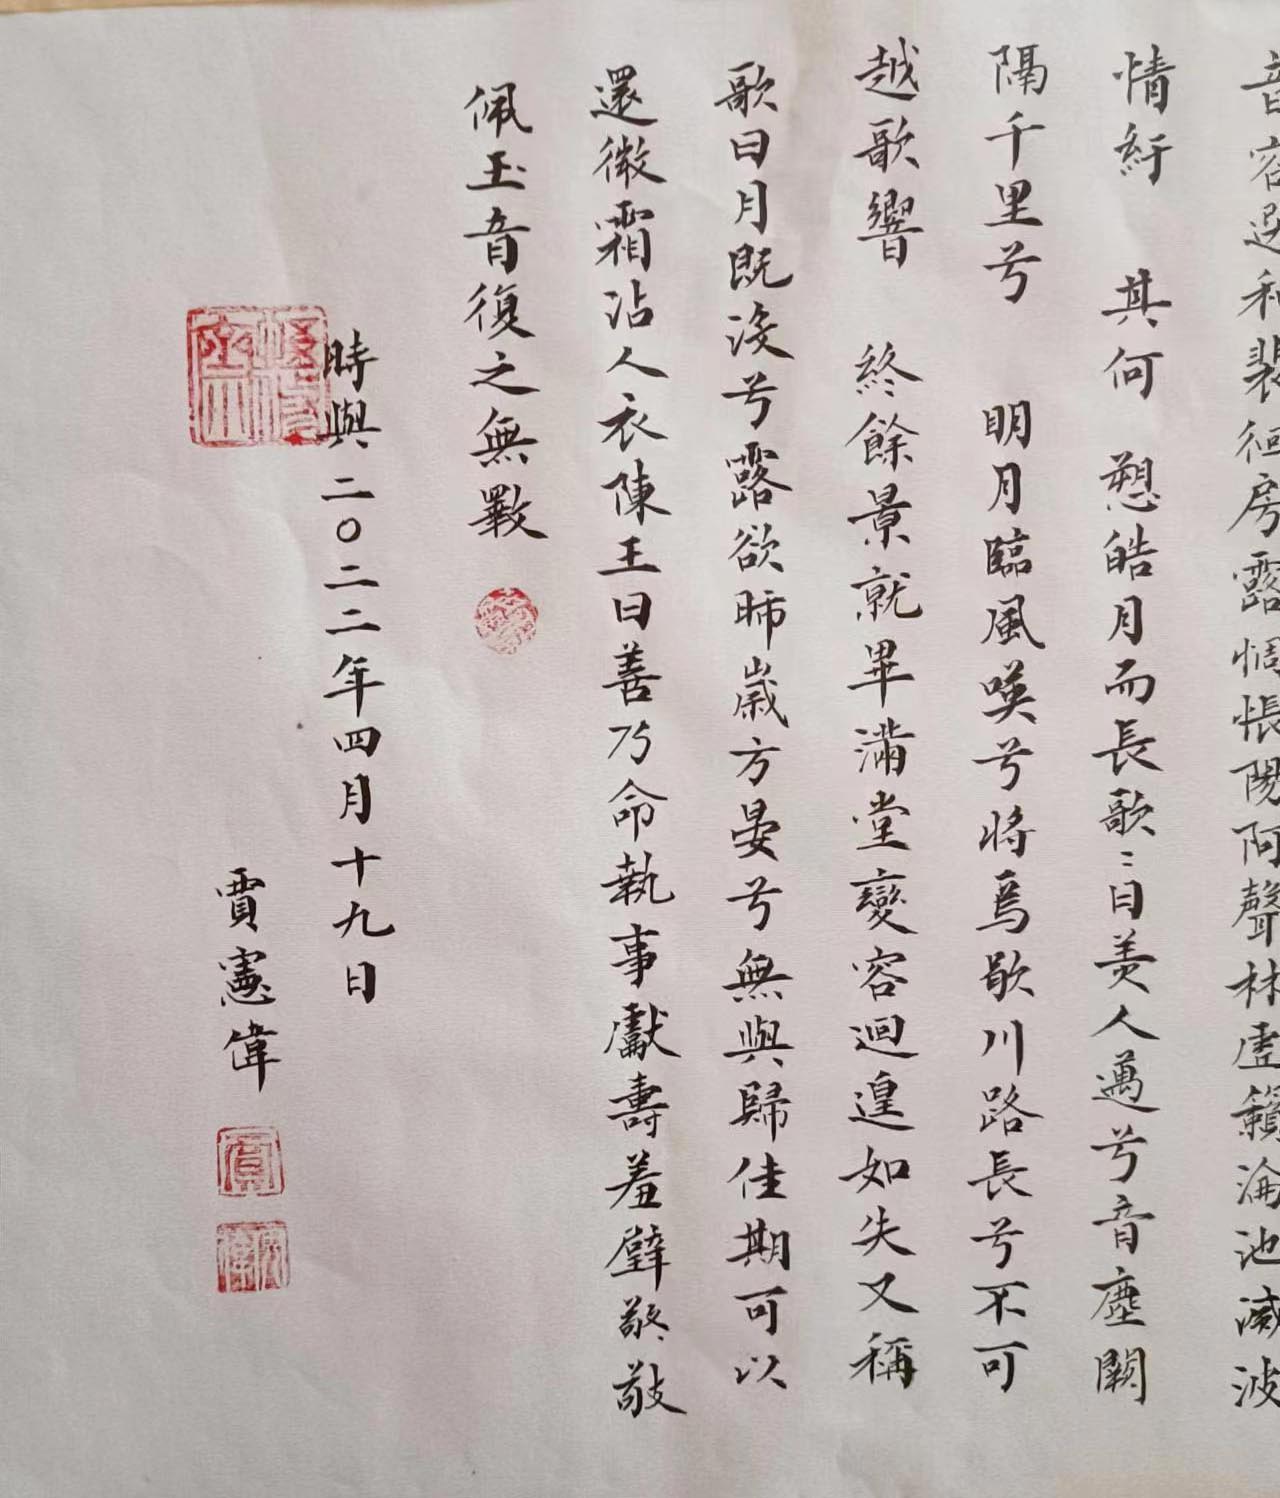 音容選和裴徊房露惆悵陽阿聲林虛籟淪池滅波
情紆 其何 愬皓月而長歌〻曰美人邁兮音塵闕
隔千里兮 明月臨風嘆兮將焉歇川路長兮不可
越歌響 終餘景就畢滿堂變容迴遑如失又稱
歌曰月既沒兮露欲晞歲方晏兮無與歸佳期可以
還微霜沾人衣陳王曰善乃命執事獻壽羞璧敬敬
佩玉音復之無斁
時與二〇二二年四月十九日
賈憲偉
賈